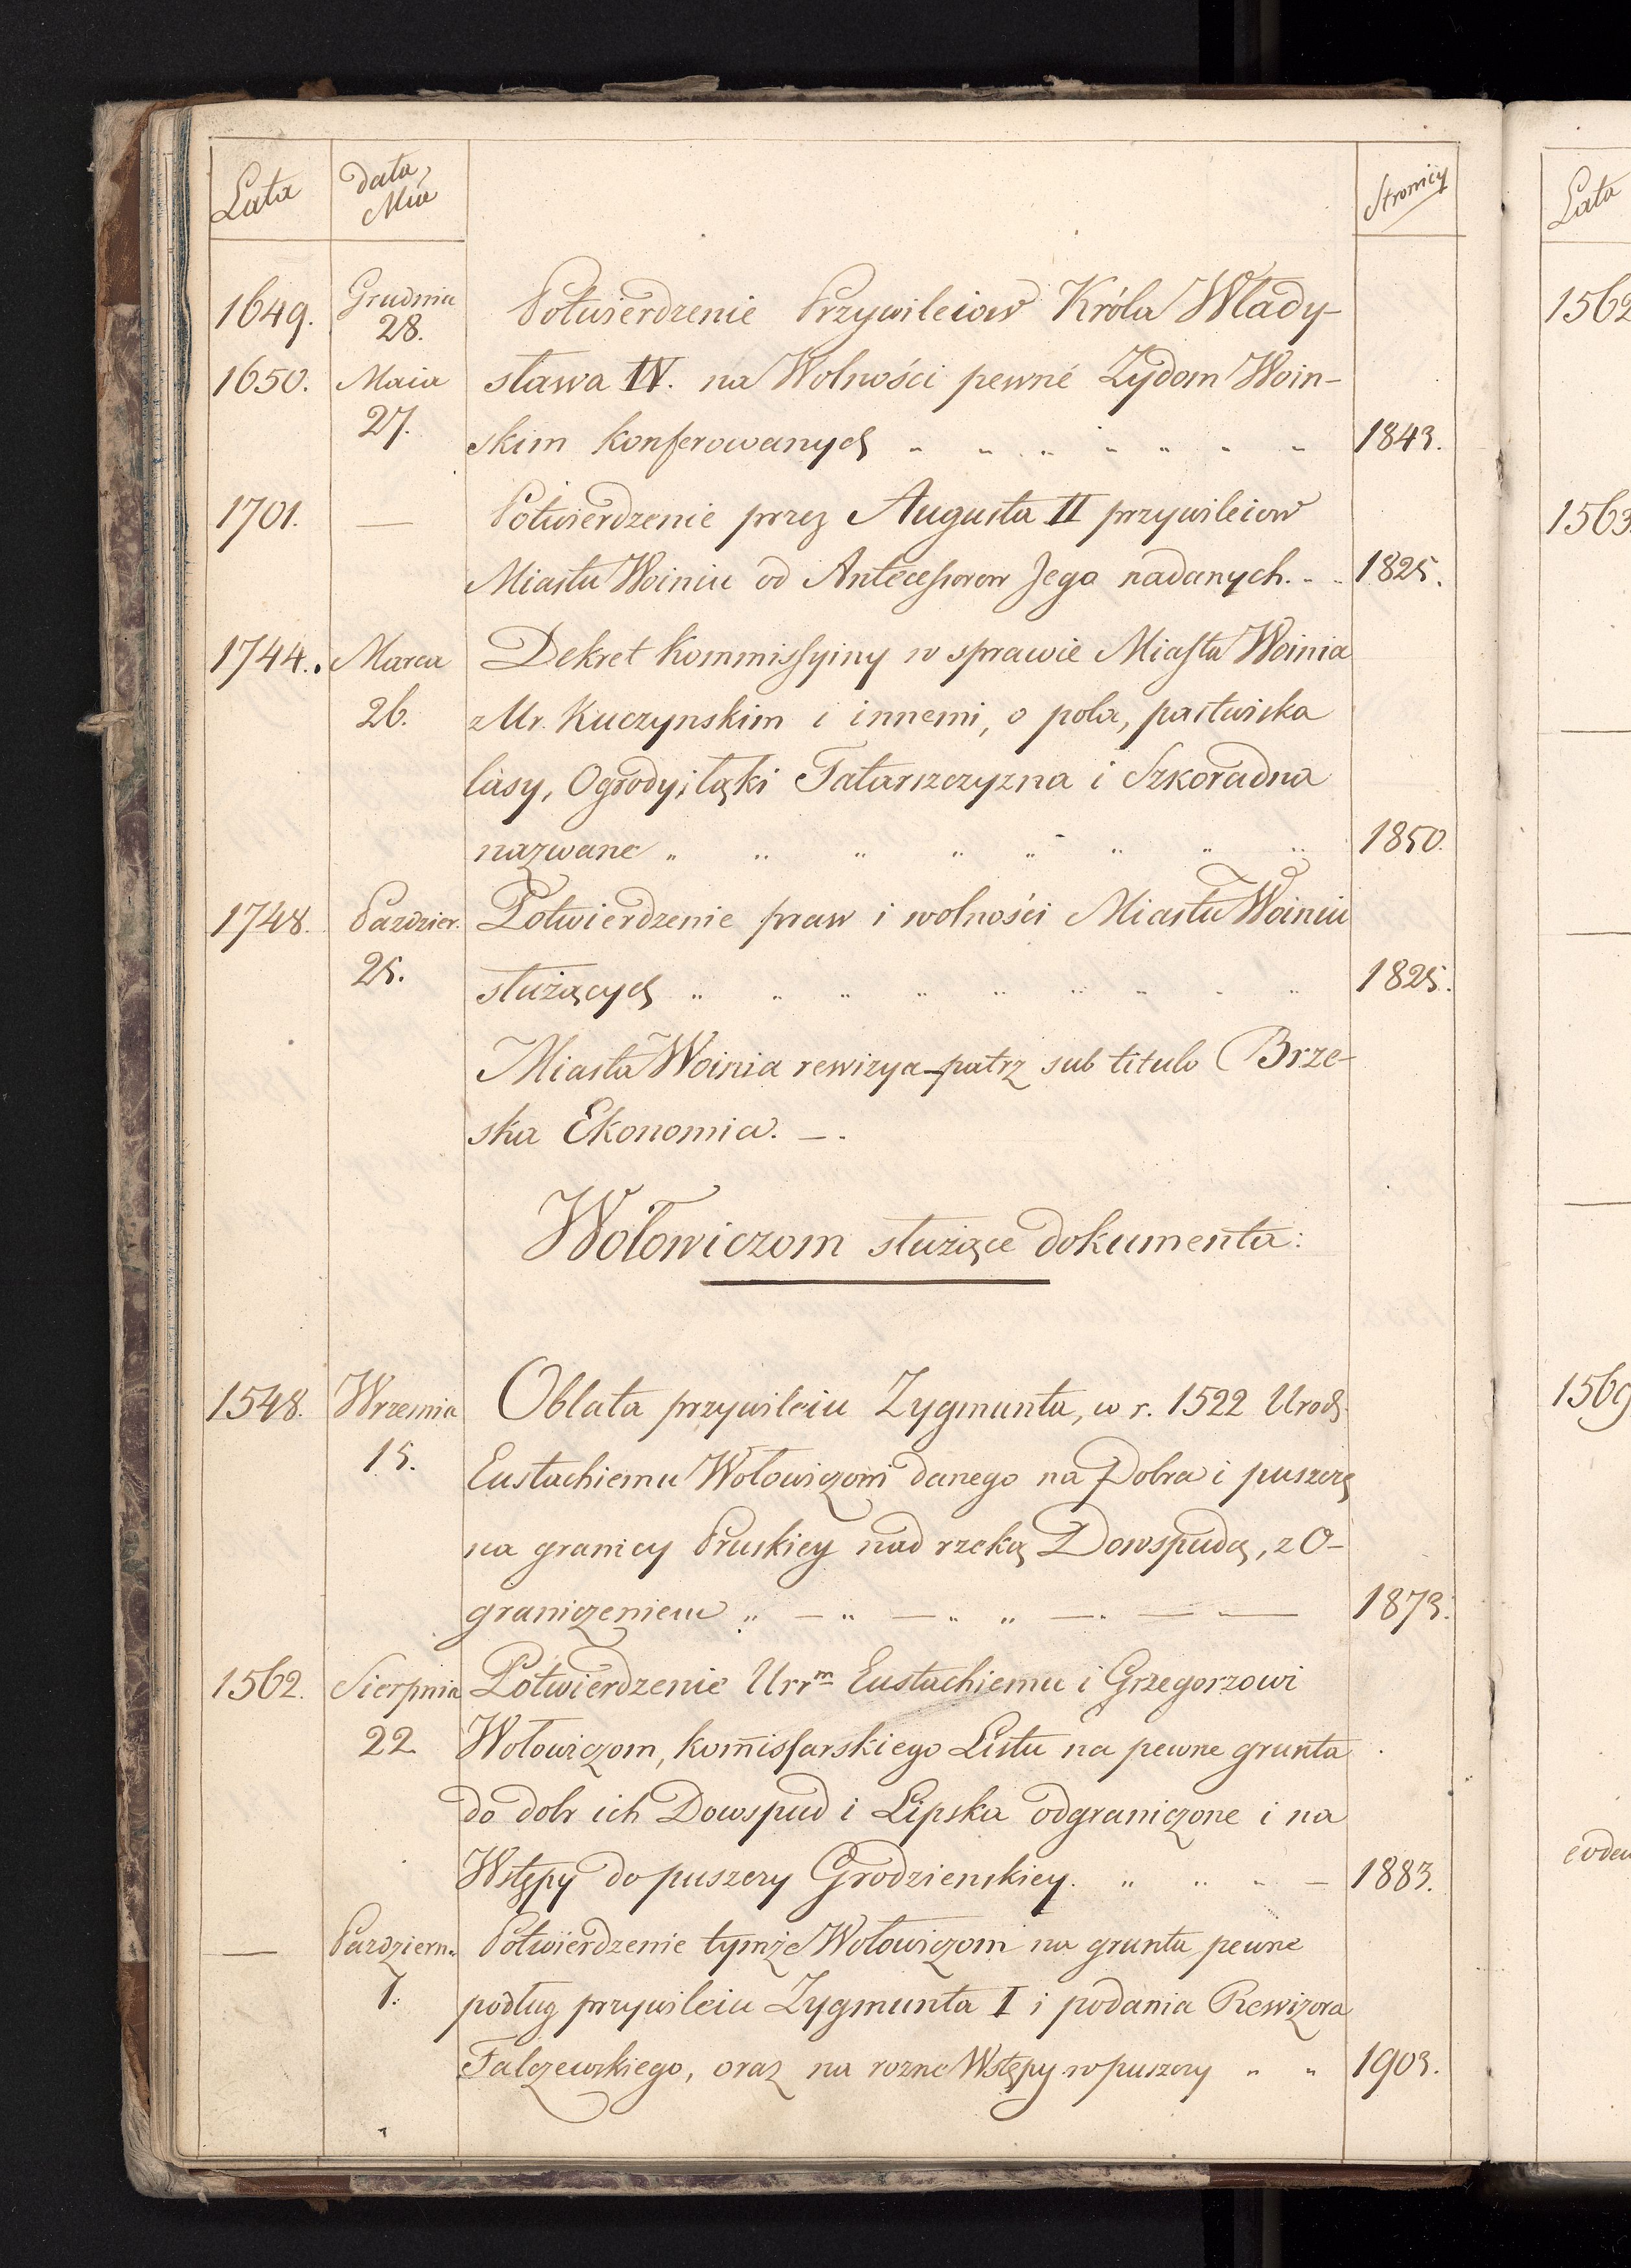 Lata data, Mca Stronicy
1649. Grudnia 28. Potwierdzenie Przywileiow Króla Włady-
1650. Maia 27. sława IV. na Wolności pewné Zydom Woin-
skim konferowanych „ „ „ „ „ „ „ 1843.
1701. — Potwierdzenie przez Augusta II przywileiow
Miastu Woiniu od Antecessorow Jego nadanych. „ „ 1825.
1744. Marca Dekret Kommissyiny w sprawie Miasta Woinia
26. z Ur. Kuczynskim i innemi, o pola, pastwiska
lasy, Ogrody, i łąki Tatarszczyzna i Szkoradna
nazwane „ „ „ „ „ „ „ „ 1850.
1748. Pazdzier. Potwierdzenie praw i wolności Miastu Woiniu
25. służących „ „ „ „ „ „ „ „ „ 1825.
Miasta Woinia rewizya – patrz sub titulo Brze-
ska Ekonomia. —.
Wołowiczom służące dokumenta:
1548. Wrzesnia Oblata przywileiu Zygmunta, w r. 1522 Urodz.
15. Eustachiemu Wołowiczowi danego na Dobra i puszczę
na granicy Pruskiey nad rzeką Dowspudą, z O-
graniczeniem „ — „ — „ „ — „ — — 1873.
1562. Sierpnia Potwierdzenie Urrm Eustachiemu i Grzegorzowi
22. Wołowiczom, kom̄issarskiego Listu na pewne grunta
do dobr ich Dowspud i Lipska odgraniczone i na
Wstępy do puszczy Grodzienskiey. „ „ „ — 1883.
— Pazdziern. Potwierdzenie tymże Wołowiczom na grunta pewne
7. podług przywileiu Zygmunta I i podania Rewizora
Falczewskiego, oraz na rozne Wstępy w puszczy „ „ 1903.
Lata
1562
1563.
1569
eodem